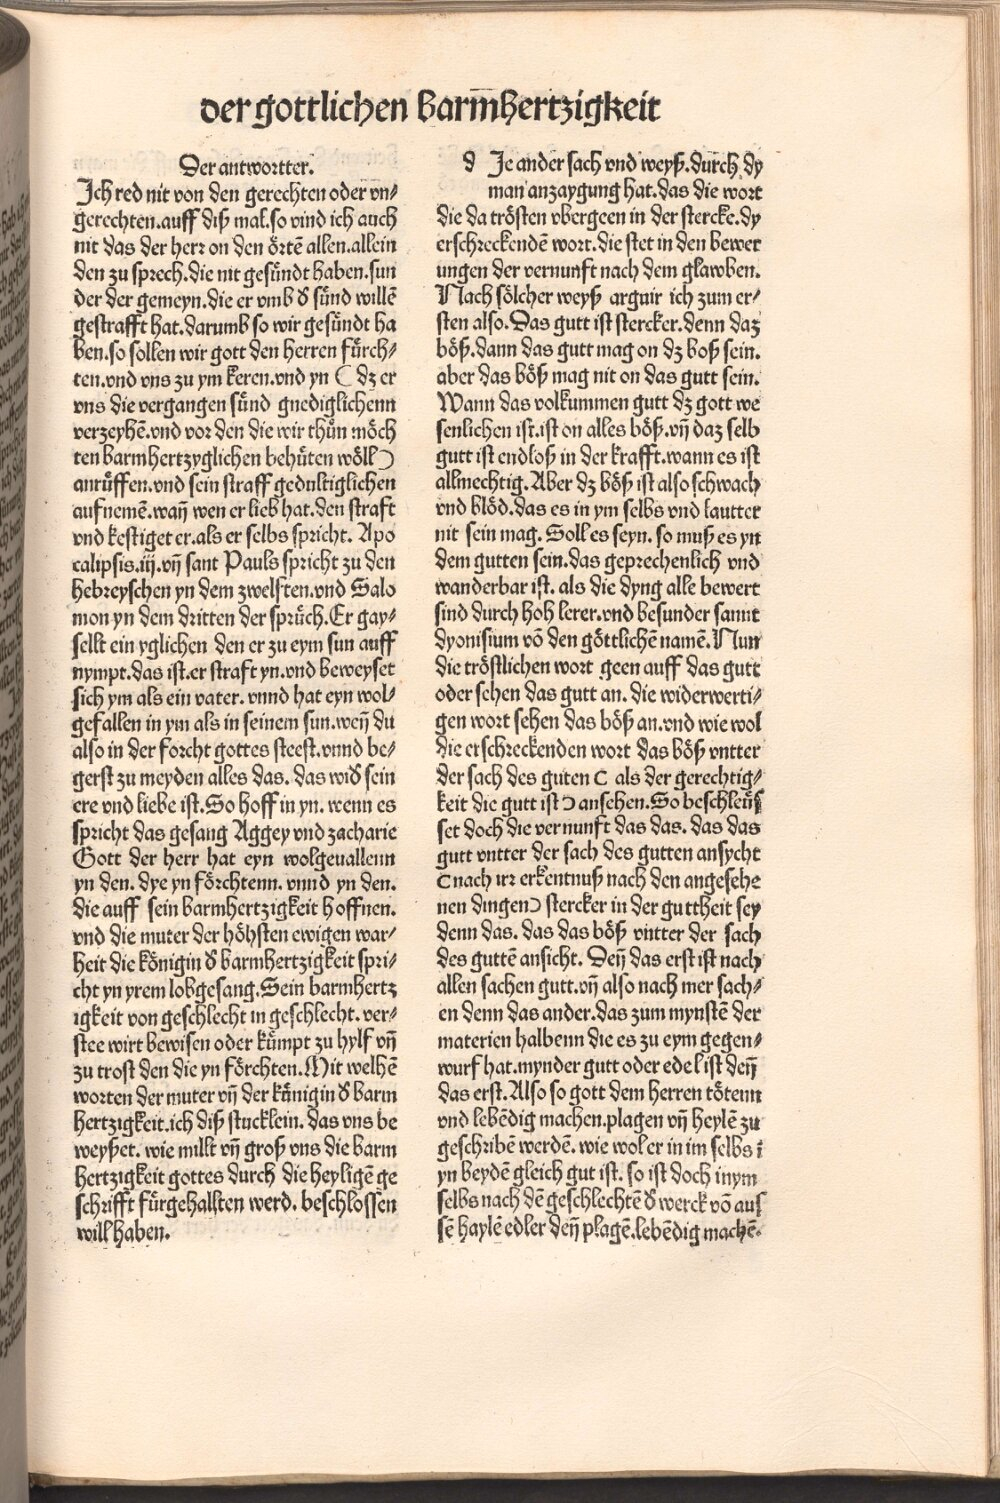 der gottlichen Barm̅hertzigkeit
Der antwortter.
Ich red nit von den gerechten oder vn⸗
gerechten.auff diß mal.so vind ich auch
nit das der herr on den örtē allen.allein
den zu sprech.die nit gesündt haben.sun
der der gemeyn.die er vmb đ sünd willē
gestrafft hat.darumb so wir gesündt ha
ben.so sollen wir gott den herren fürch⸗
ten.vnd vns zu ym keren.vnd yn ( dz er
vns die vergangen sünd gnediglichenn
verzeyhē.vnd vor den die wir thün möch
ten barmhertzyglichen behüten wöll)
anrüffen.vnd sein straff gedultiglichen
aufnemē.wan̄ wen er lieb hat.den straft
vnd kestiget er.als er selbs spricht. Apo
calipsis.iij.vn̄ sant Pauls spricht zu den
hebreyschen yn dem zwelften.vnd Salo
mon yn dem dritten der sprüch.Er gay⸗
selt ein yglichen den er zu eym sun auff
nympt.das ist.er straft yn.vnd beweyset
sich ym als ein vater. vnnd hat eyn wol⸗
gefallen in ym als in seinem sun.wen̄ du
also in der forcht gottes steest.vnnd be⸗
gerst zu meyden alles das. das wiđ sein
ere vnd liebe ist.So hoff in yn. wenn es
spricht das gesang Aggey vnd zacharie
Gott der herr hat eyn wolgeuallenn
yn den. dye yn förchtenn. vnnd yn den.
die auff sein barmhertzigkeit hoffnen.
vnd die muter der höhsten ewigen war⸗
heit die königin đ barmhertzigkeit spri⸗
cht yn yrem lobgesang.Sein barmhertz
igkeit von geschlecht in geschlecht. ver⸗
stee wirt bewisen oder kümpt zu hylf vn̄
zu trost den die yn förchten.Mit welhē
worten der muter vn̄ der künigin đ barm
hertzigkeit.ich diß stucklein.das vns be
weyßet. wie milt vn̄ groß vns die barm
hertzigkeit gottes durch die heyligē ge
schrifft fürgehallten werd. beschlossen
will haben.
d Je ander sach vnd weyß.durch dy
man anzaygung hat.das die wort
die da trösten vbergeen in der stercke.dy
erschreckendē wort.die stet in den bewer
ungen der vernunft nach dem glawben.
Nach sölcher weyß arguir ich zum er⸗
sten also.Das gutt ist stercker.denn daz
böß.dann das gutt mag on dz boß sein.
aber das böß mag nit on das gutt sein.
Wann das volkummen gutt dz gott we
senlichen ist.ist on alles böß.vn̄ daz selb
gutt ist endloß in der krafft.wann es ist
allmechtig. Aber dz böß ist also schwach
vnd blöd.das es in ym selbs vnd lautter
nit sein mag. Soll es seyn. so muß es yn
dem gutten sein.das geprechenlich vnd
wanderbar ist. als die dyng alle bewert
sind durch hoh lerer.vnd besunder sannt
dyonisium vō den göttlichē namē. Nun
die tröstlichen wort geen auff das gutt
oder sehen das gutt an. die widerwerti⸗
gen wort sehen das böß an.vnd wie wol
die erschreckenden wort das böß vntter
der sach des guten ( als der gerechtig⸗
keit die gutt ist ) ansehen.So beschleüs
set doch die vernunft das das. das das
gutt vntter der sach des gutten ansycht
(nach irr erkentnuß nach den angesehe
nen dingen) stercker in der guttheit sey
denn das. das das böß vntter der sach
des guttē ansicht. Den̄ das erst ist nach
allen sachen gutt.vn̄ also nach mer sach⸗
en denn das ander.das zum mynstē der
materien halbenn die es zu eym gegen⸗
wurf hat.mynder gutt oder edel ist den̄
das erst.Also so gott dem herren tötenn
vnd lebēdig machen.plagen vn̄ heylē zu
geschribē werdē. wie wol er in im selbs ī
yn beydē gleich gut ist. so ist doch inym
selbs nach dē geschlechtē đ werck vō aus
sē haylē edler den̄ plagē.lebēdig machē.